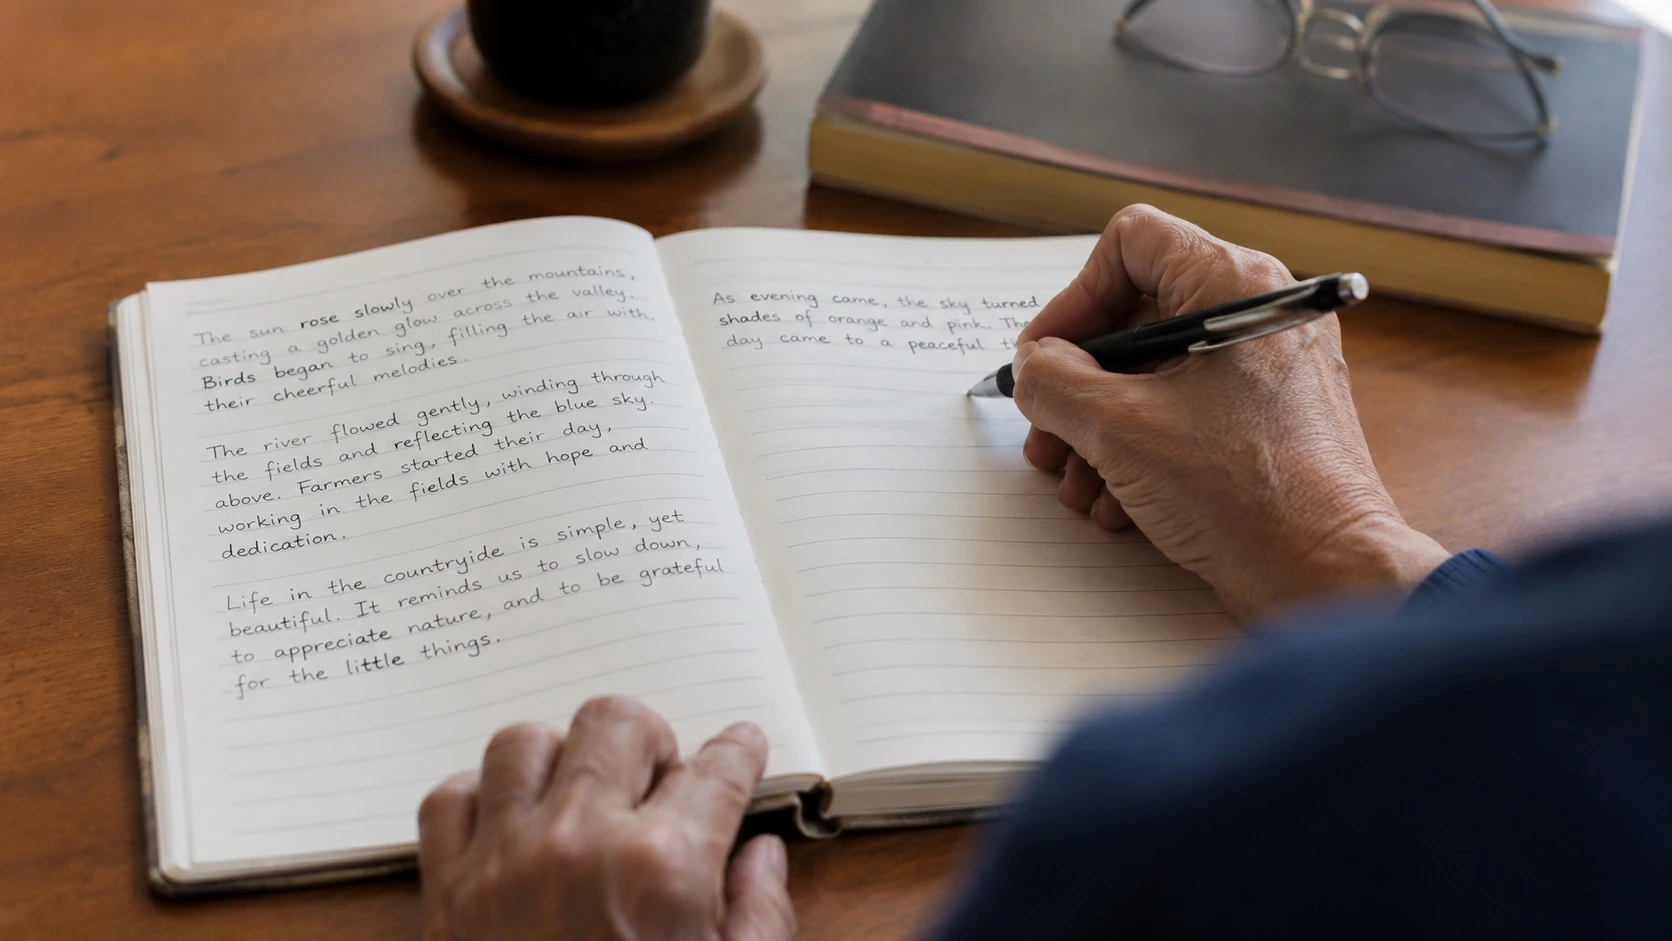 The sun rose slowly over the mountains,
casting a golden glow across the valley.
Birds began to sing, filling the air with
their cheerful melodies.
The river flowed gently, winding through
the fields and reflecting the blue sky.
above. Farmers started their day,
working in the fields with hope and
dedication.
Life in the countryide is simple, yet
beautiful. It reminds us to slow down,
to appreciate nature, and to be grateful
for the little things.
As evening came, the sky turned
shades of orange and pink. The
day came to a peaceful